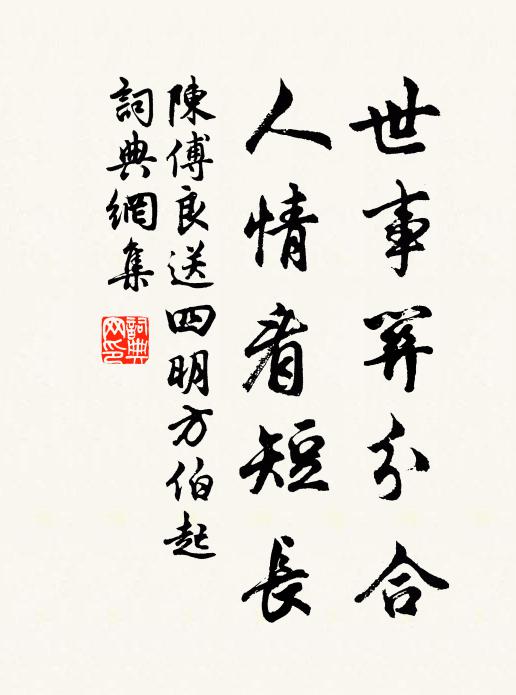 世事筭分合
人情看短長
陳傅良送四明方伯起
詞典網集
詞典
网印